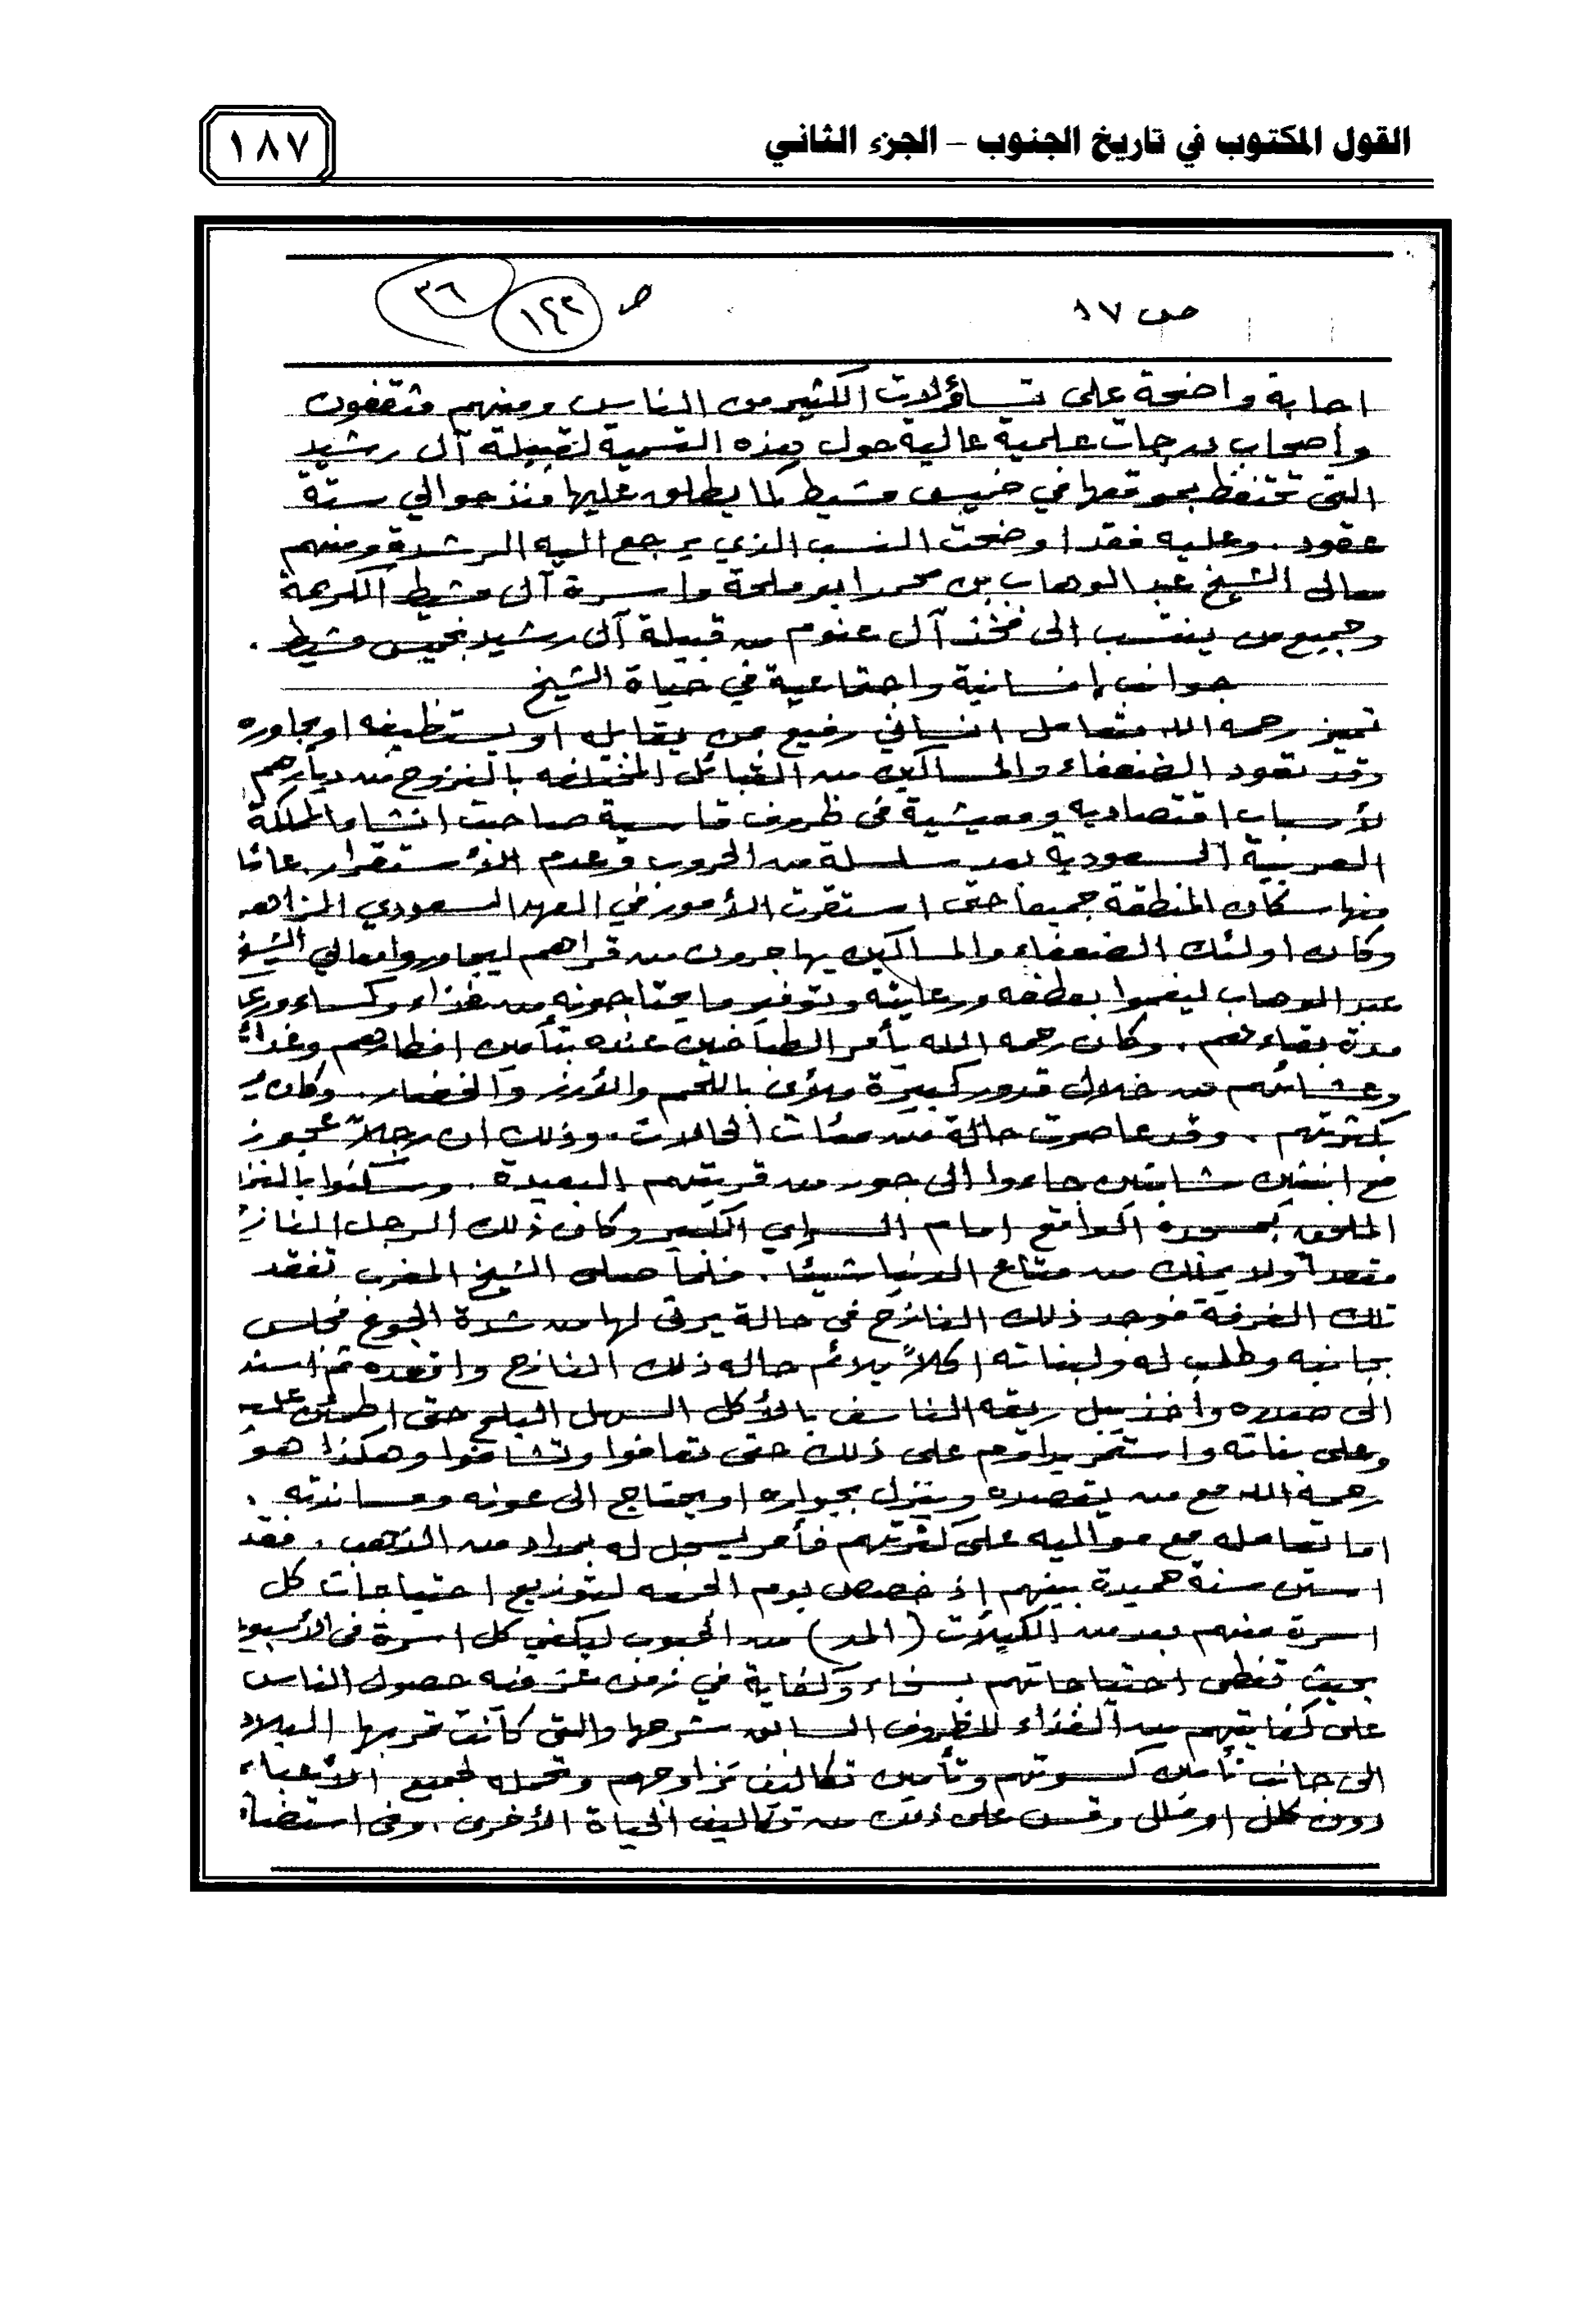 القول المكتوب في تاريخ الجنوب – الجزء الثاني
١٨٧
ص ١٧
ص ١٤٢ ٣٦
اجابة واضحة على تساؤلات الكثير من الناس ومنهم مثقفون
وأصحاب درجات علمية عالية حول هذه التسمية لقبيلة آل رشيد
التي تحتفظ بموقعها في خميس مشيط كما يطلق عليها منذ حوالي ستة
عقود . وعليه فقد اوضحت النسب الذي يرجع اليه الرشدة ومنهم
معالي الشيخ عبد الوهاب بن محمد ابو ملحة واسرة آل مشيط الكريمة
وجميع من ينتسب الى فخذ آل عنوم من قبيلة آل رشيد بخميس مشيط .
جوانب إنسانية واجتماعية في حياة الشيخ
تميز رحمه الله بتعامل انساني رفيع من يقابله او يستظيفه او يجاوره
وقد تعود الضعفاء والمساكين من القبائل المختلفه بالنزوح من ديارهم
لأسباب اقتصاديه ومعيشية في ظروف قاسية صاحبت انشاء المملكة
العربية السعودية بعد سلسلة من الحروب وعدم الأستقرار عانا
منها سكان المنطقة جميعاً حتى استقرت الأمور في العهد السعودي الزاهر
وكان اولئك الضعفاء والمساكين يهاجرون من قراهم ليجاوروا معالي الشيخ
عبد الوهاب لينعموا بعطفه ورعايته وتوفير ما يحتاجونه من غذاء وكساء
مدة بقاءهم . وكان رحمه الله يأمر الطباخين عنده بتأمين افطارهم وغداء
وعشائهم من خلال قدور كبيرة ملأى باللحم والأرز والخضار . وكان
بكثرتهم . وقد عاصرت حالة من مئات الحالات . وذلك ان رجلاً عجوز
مع ابنتين شابتين جاءوا الى جور من قريتهم البعيدة . وسكنوا
الملحق بمسجده الواقع امام السراي الكبير وكان ذلك الرجل الناز
مقعداً ولا يملك من متاع الدنيا شيئا . فلما صلى الشيخ المغرب تفقد
تلك الغرفة فوجد ذلك النازح في حالة يرثى لها من شدة الجوع فجلس
بجانبه وطلب له ولبناته اكلاً يلائم حاله ذلك النازح واقعده ثم اسند
الى صدره وأخذ يبل ريقه الناشف بالأكل السهل البلع حتى اطمئن عليه
وعلى بناته واستمر يداوم على ذلك حتى تعافوا وتشافوا وهكذا هو
رحمه الله مع من يقصده وينزل بجواره او يحتاج الى عونه ومساندته .
اما تعامله مع مواليه على كثرتهم فأمر يسجل له بمداد من الذهب . فقد
استن سنة حميدة بينهم إذ خصص يوم الجمعه لتوزيع احتياجات كل
اسرة منهم بعدد من الكيلات (المد) من الحبوب ليكفي كل اسرة في الأسبوع
بحيث تغطي احتياجاتهم بسخاء وكفاية في زمن عز فيه حصول الناس
على كفايتهم من الغذاء للظروف السابق شرحها والتي كانت تمر بها البلاد
الى جانب تأمين كسوتهم وتأمين تكاليف تزاوجهم وتحمله لجميع الأعباء
دون كلل او ملل وقس على ذلك من تكاليف الحياة الأخرى . وفي استضاة